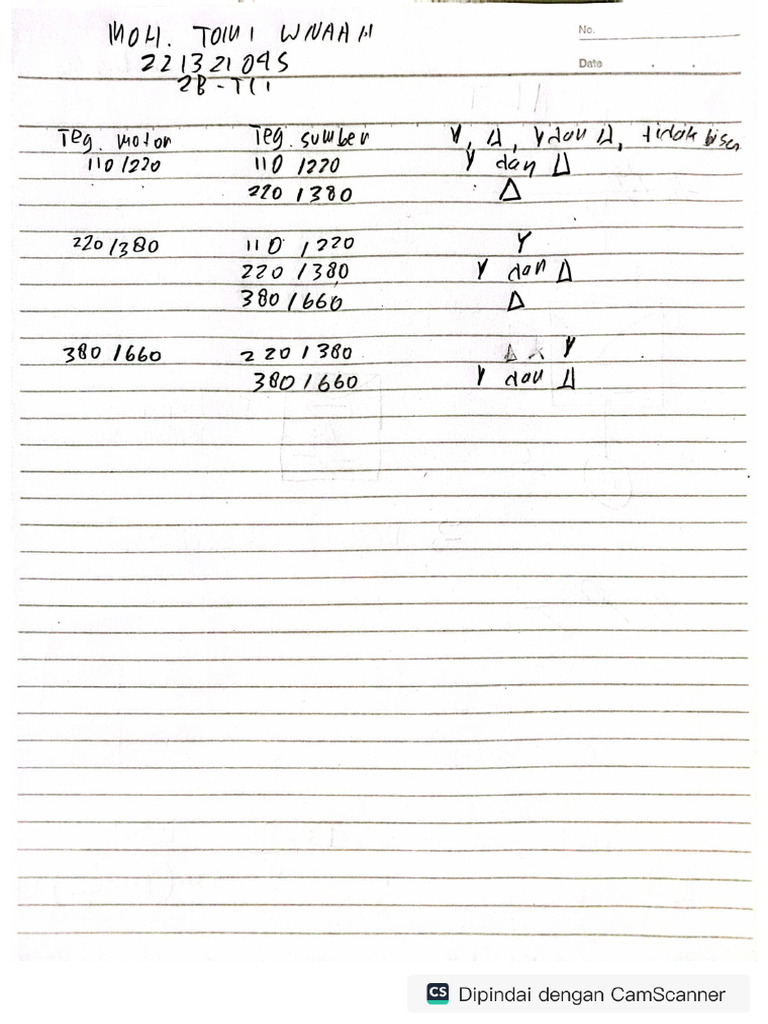 MOH. TOMI WNAAH
No.
22132104S
Date
2B-TCI
Teg. motor Teg. sumber Y, Δ, Y dan Δ, tidak bisa
110/220 110/220 Y dan Δ
220/380 Δ
220/380 110/220 Y
220/380 Y dan Δ
380/660 Δ
380/660 220/380 Y
380/660 Y dan Δ
CS Dipindai dengan CamScanner